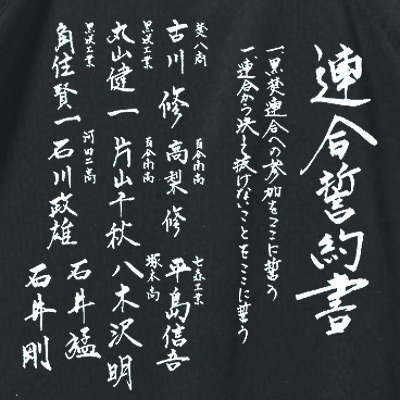 連合誓約書
一、黒葵連合への参加をここに誓う
一、連合から決して抜けないことをここに誓う
葵八商
古川修
百合南高
高梨修
七森工業
平島信吾
黒咲工業
丸山健一
百合南高
片山千秋
塚本高
八木沢明
黒咲工業
角住賢一
河田二高
石川政雄
石井猛
石井剛